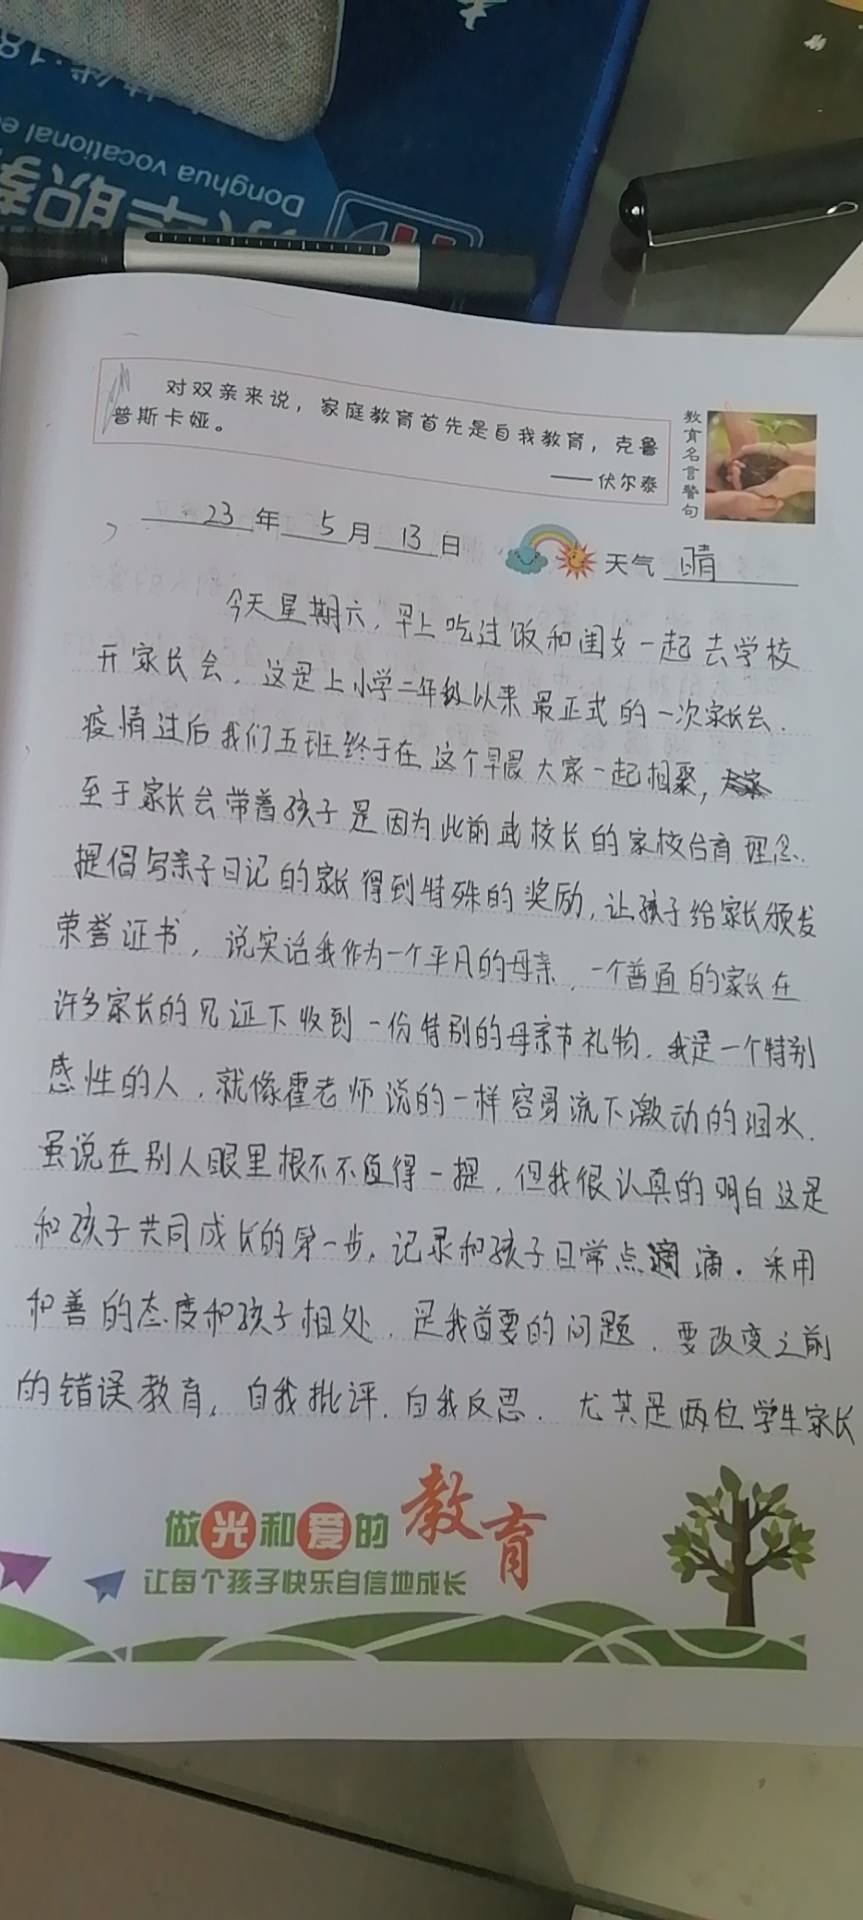 Donghua vocational
对双亲来说，家庭教育首先是自我教育，克鲁
普斯卡娅。
——伏尔泰
教育名言警句
23年5月13日
天气 晴
今天星期六，早上吃过饭和闺女一起去学校
开家长会，这是上小学二年级以来最正式的一次家长会.
疫情过后我们五班终于在这个早晨大家一起相聚，
至于家长会带着孩子是因为此前武校长的家校合育理念.
提倡写亲子日记的家长得到特殊的奖励,让孩子给家长颁发
荣誉证书，说实话我作为一个平凡的母亲，一个普通的家长在
许多家长的见证下收到一份特别的母亲节礼物.我是一个特别
感性的人，就像霍老师说的一样容易流下激动的泪水.
虽说在别人眼里根本不值得一提，但我很认真的明白这是
和孩子共同成长的第一步,记录和孩子日常点滴.采用
和善的态度和孩子相处，是我首要的问题.要改变之前
的错误教育,自我批评.自我反思.尤其是两位学生家长
做光和爱的教育
让每个孩子快乐自信地成长